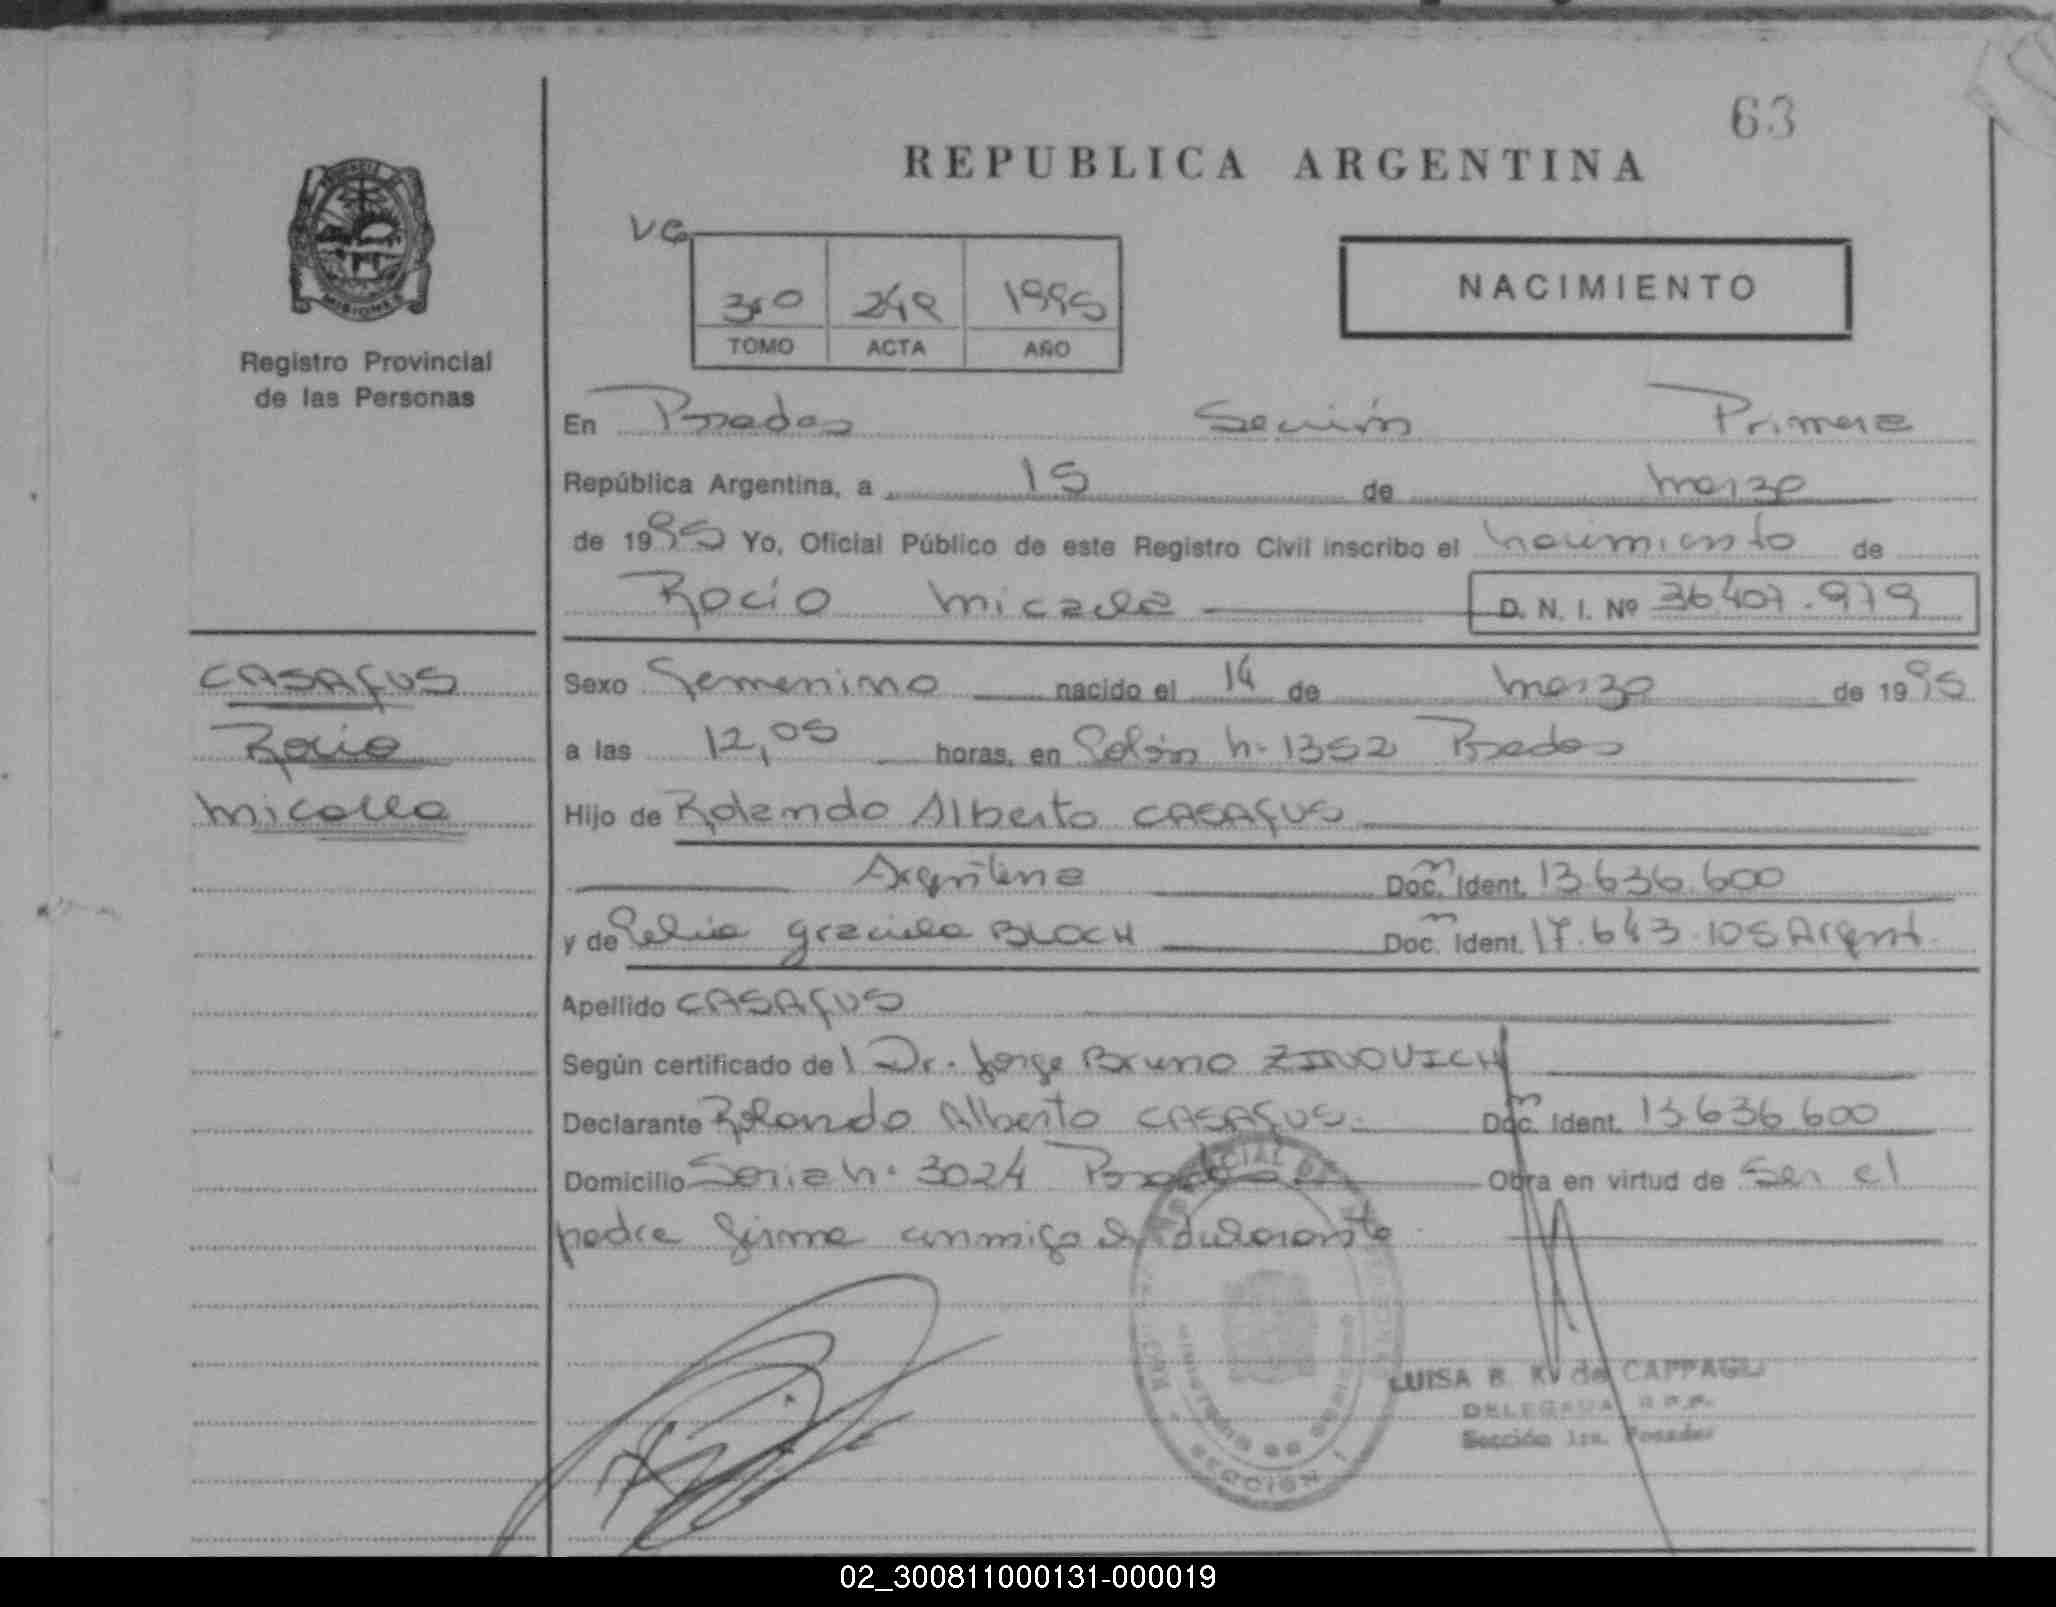 63
REPUBLICA ARGENTINA
NACIMIENTO
1995
TOMO ACTA AÑO
MISIONES
Registro Provincial
de las Personas
En Posadas Sección Primera
República Argentina, a 15 de marzo
de 1995 Yo, Oficial Público de este Registro Civil inscribo el nacimiento de
Rocio Micaela D. N. I. Nº 36407.979
CASAFUS
Rocio
Micaela
Sexo Femenino nacido el 14 de marzo de 1995
a las 12,05 horas, en Colón n. 1352 Posadas
Hijo de Rolando Alberto CASAFUS
Argentina Doc. Ident. 13.636.600
y de Graciela BLOCH Doc. Ident. 17.643.105 Argent.
Apellido CASAFUS
Según certificado del Dr. Jorge Bruno ZINOVICH
Declarante Rolando Alberto CASAFUS. Doc. Ident. 13.636.600
Domicilio Soria n. 3024 Posadas Obra en virtud de ser el
padre firma conmigo el declarante
LUISA B. K. de CAPPAGLI
DELEGADA R.P.P.
Sección 1ra. Posadas
SECCION 1
02_300811000131-000019